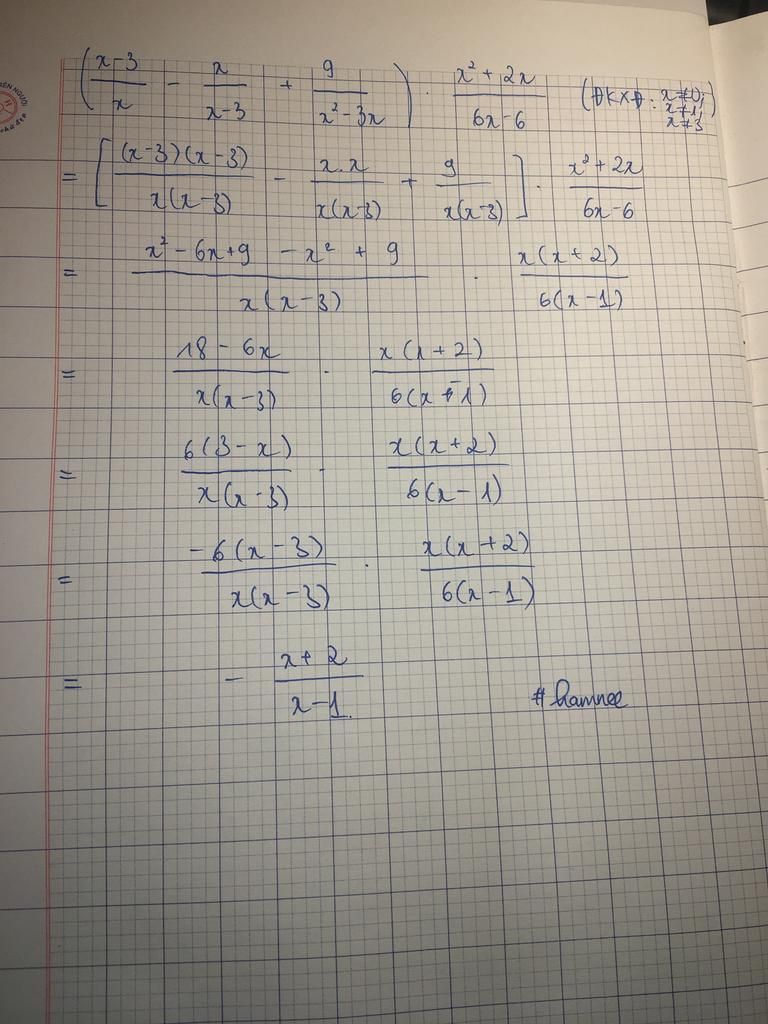 ( (x-3)/x - x/(x-3) + 9/(x² - 3x) ) · (x² + 2x)/(6x-6) (ĐKXĐ: x≠0; x≠1; x≠3)
= [ (x-3)(x-3)/x(x-3) - x.x/x(x-3) + 9/x(x-3) ] · (x² + 2x)/(6x-6)
= (x² - 6x + 9 - x² + 9)/x(x-3) · x(x+2)/6(x-1)
= (18 - 6x)/x(x-3) · x(x+2)/6(x-1)
= 6(3-x)/x(x-3) · x(x+2)/6(x-1)
= -6(x-3)/x(x-3) · x(x+2)/6(x-1)
= - (x+2)/(x-1)